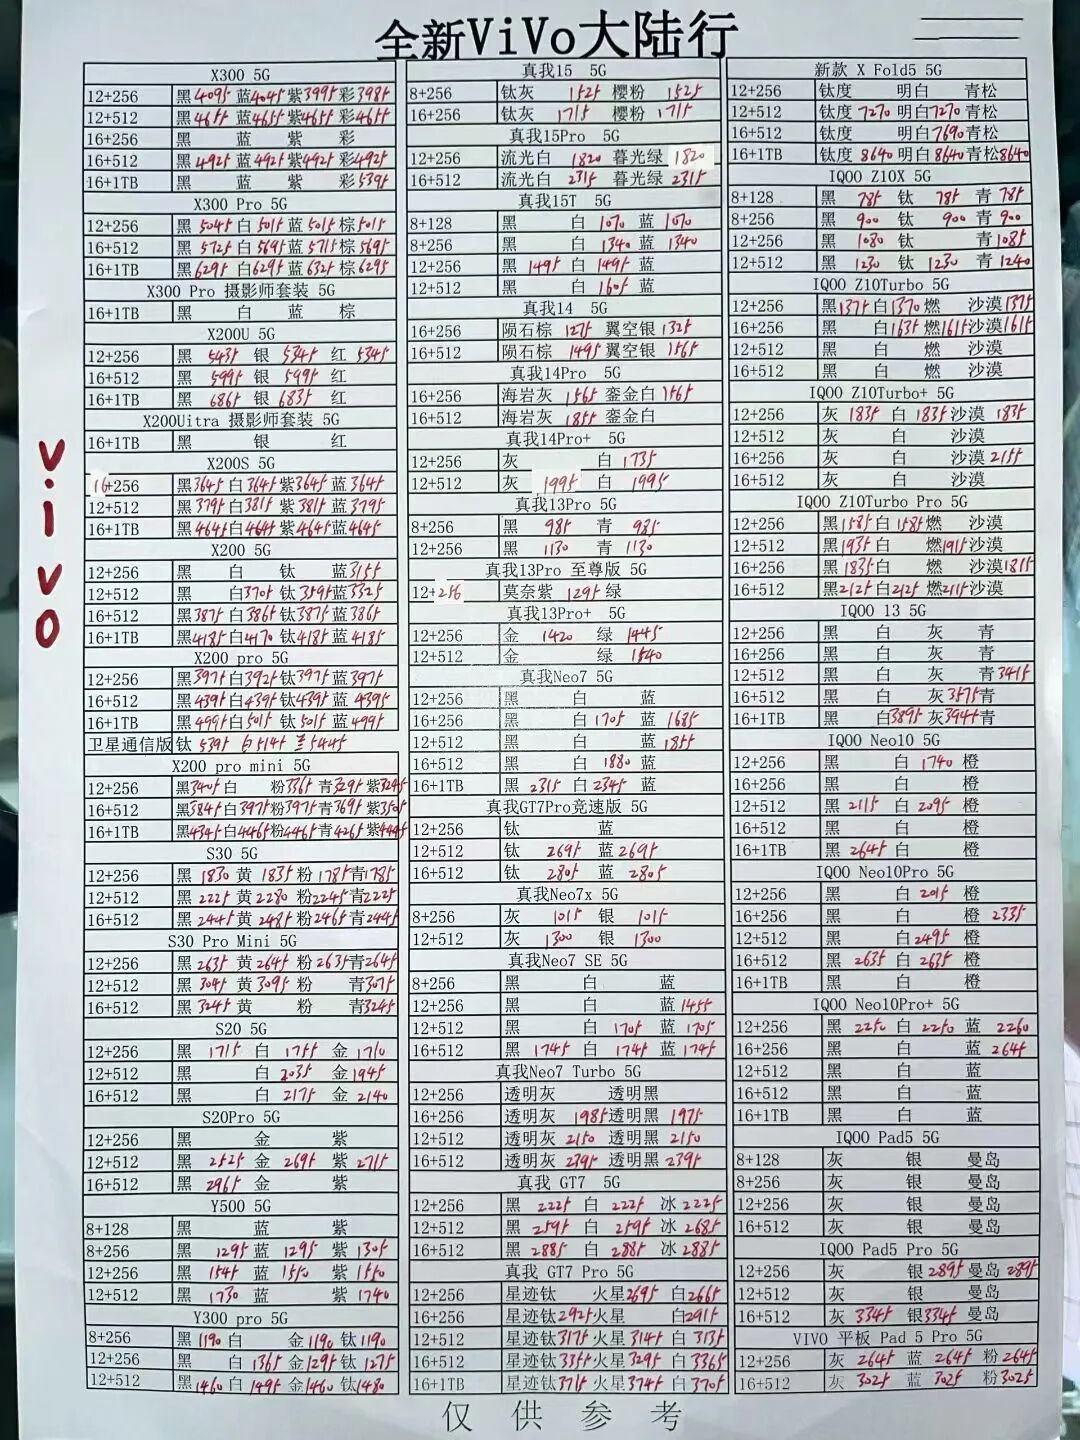 全新ViVo大陆行
vivo
X300 5G
12+256 黑4095 蓝4045 紫3995 彩3985
12+512 黑4655 蓝4655 紫4655 彩4655
16+256 黑 蓝 紫 彩
16+512 黑4925 蓝4925 紫4925 彩4925
16+1TB 黑 蓝 紫 彩5395
X300 Pro 5G
12+256 黑5045 白5015 蓝5015 棕5015
16+512 黑5725 白5695 蓝5715 棕5695
16+1TB 黑6295 白6295 蓝6325 棕6295
X300 Pro 摄影师套装 5G
16+1TB 黑 白 蓝 棕
X200U 5G
12+256 黑 5435 银 5345 红 5345
16+512 黑 5995 银 5995 红
16+1TB 黑 6865 银 6835 红
X200Uitra 摄影师套装 5G
16+1TB 黑 银 红
X200S 5G
16+256 黑3645 白3645 紫3645 蓝3645
12+512 黑3795 白3815 紫3815 蓝3795
16+1TB 黑4645 白4645 紫4645 蓝4645
X200 5G
12+256 黑 白 钛 蓝3155
12+512 黑 白3705 钛3595 蓝3325
16+512 黑3875 白3865 钛3875 蓝3865
16+1TB 黑4185 白4170 钛4185 蓝4185
X200 pro 5G
12+256 黑3975 白3925 钛3975 蓝3975
16+512 黑4395 白4395 钛4395 蓝4395
16+1TB 黑4995 白5015 钛5015 蓝4995
卫星通信版 钛 5395 白5145 5445
X200 pro mini 5G
12+256 黑3405 白 粉3365 青3295 紫3295
16+512 黑3845 白3975 粉3975 青3695 紫3505
16+1TB 黑4345 白4465 粉4465 青4265 紫4445
S30 5G
12+256 黑 1830 黄 1835 粉 1785 青1785
12+512 黑 2225 黄 2280 粉 2245 青2225
16+512 黑 2445 黄 2485 粉 2465 青2445
S30 Pro Mini 5G
12+256 黑 2635 黄 2645 粉 2635 青2645
12+512 黑 3045 黄 3095 粉 青3075
16+512 黑 3245 黄 粉 青3245
S20 5G
12+256 黑 1715 白 1755 金 1710
12+512 黑 白 2035 金 1945
16+512 黑 白 2175 金 2140
S20Pro 5G
12+256 黑 金 紫
12+512 黑 2525 金 2695 紫 2715
16+512 黑 2965 金 紫
Y500 5G
8+128 黑 蓝 紫
8+256 黑 1295 蓝 1295 紫 1305
12+256 黑 1545 蓝 1550 紫 1550
12+512 黑 1730 蓝 紫 1740
Y300 pro 5G
8+256 黑1190 白 金1190 钛1190
12+256 黑 白 1365 金1295 钛 1275
12+512 黑1460 白 1495 金1460 钛1480
真我15 5G
8+256 钛灰 1525 樱粉 1525
16+256 钛灰 1715 樱粉 1715
真我15Pro 5G
12+256 流光白 1820 暮光绿 1820
16+512 流光白 2315 暮光绿 2315
真我15T 5G
8+128 黑 白 1070 蓝 1070
8+256 黑 白 1340 蓝 1340
12+256 黑 1495 白 1495 蓝
12+512 黑 白 1605 蓝
真我14 5G
16+256 陨石棕 1275 翼空银 1325
16+512 陨石棕 1495 翼空银 1565
真我14Pro 5G
12+256 海岩灰 1565 銮金白 1565
16+512 海岩灰 1855 銮金白
真我14Pro+ 5G
12+256 灰 白 1735
12+512 灰 1995 白 1995
真我13Pro 5G
8+256 黑 985 青 985
12+256 黑 1130 青 1130
真我13Pro 至尊版 5G
12+256 莫奈紫 1295 绿
真我13Pro+ 5G
12+256 金 1420 绿 1445
12+512 金 绿 1540
真我Neo7 5G
12+256 黑 白 蓝
16+256 黑 白 1705 蓝 1685
12+512 黑 白 蓝 1855
16+512 黑 白 1880 蓝
16+1TB 黑 2315 白 2345 蓝
真我GT7Pro竞速版 5G
12+256 钛 蓝
12+512 钛 2695 蓝 2695
16+512 钛 2805 蓝 2805
真我Neo7x 5G
8+256 灰 1015 银 1015
12+512 灰 1300 银 1300
真我Neo7 SE 5G
8+256 黑 白 蓝
12+256 黑 白 蓝 1455
12+512 黑 白 1705 蓝 1705
16+512 黑 1745 白 1745 蓝 1745
真我Neo7 Turbo 5G
12+256 透明灰 透明黑
16+256 透明灰 1985 透明黑 1975
12+512 透明灰 2150 透明黑 2150
16+512 透明灰 2395 透明黑 2395
真我 GT7 5G
12+256 黑 2225 白 2225 冰 2225
12+512 黑 2595 白 2595 冰 2685
16+512 黑 2885 白 2885 冰 2885
真我 GT7 Pro 5G
12+256 星迹钛 火星2695 白 2665
16+256 星迹钛2925 火星 白2915
12+512 星迹钛 3175 火星 3145 白 3135
16+512 星迹钛 3355 火星 3295 白 3365
16+1TB 星迹钛 3715 火星 3745 白 3705
新款 X Fold5 5G
12+256 钛度 明白 青松
12+512 钛度 7270 明白7270 青松
16+512 钛度 明白7690 青松
16+1TB 钛度 8640 明白 8640 青松8640
IQOO Z10X 5G
8+128 黑 785 钛 785 青 785
8+256 黑 900 钛 900 青 900
12+256 黑 1080 钛 青1085
12+512 黑 1230 钛 1230 青 1240
IQOO Z10Turbo 5G
12+256 黑1375 白1370 燃 沙漠1375
16+256 黑 白1635 燃1615 沙漠1615
12+512 黑 白 燃 沙漠
16+512 黑 白 燃 沙漠
IQOO Z10Turbo+ 5G
12+256 灰 1835 白 1835 沙漠 1835
12+512 灰 白 沙漠
16+256 灰 白 沙漠 2155
16+512 灰 白 沙漠
IQOO Z10Turbo Pro 5G
12+256 黑1585 白 1585 燃 沙漠
12+512 黑1935 白 燃1915 沙漠
16+256 黑1835 白 燃 沙漠1815
16+512 黑2125 白2125 燃2115 沙漠
IQOO 13 5G
12+256 黑 白 灰 青
16+256 黑 白 灰 青
12+512 黑 白 灰 青3415
16+512 黑 白 灰3575 青
16+1TB 黑 白3895 灰3945 青
IQOO Neo10 5G
12+256 黑 白 1740 橙
16+256 黑 白 橙
12+512 黑 2115 白 2095 橙
16+512 黑 白 橙
16+1TB 黑 2645 白 橙
IQOO Neo10Pro 5G
12+256 黑 白 2015 橙
16+256 黑 白 橙 2335
12+512 黑 白2495 橙
16+512 黑 2635 白 2635 橙
16+1TB 黑 白 橙
IQOO Neo10Pro+ 5G
12+256 黑 2250 白 2250 蓝 2260
16+256 黑 白 蓝 2645
12+512 黑 白 蓝
16+512 黑 白 蓝
16+1TB 黑 白 蓝
IQOO Pad5 5G
8+128 灰 银 曼岛
8+256 灰 银 曼岛
12+256 灰 银 曼岛
16+512 灰 银 曼岛
IQOO Pad5 Pro 5G
12+256 灰 银2895 曼岛 2895
12+512 灰 银 曼岛
16+512 灰 3345 银3345 曼岛
VIVO 平板 Pad 5 Pro 5G
12+256 灰 2645 蓝 2645 粉 2645
16+512 灰 3025 蓝 3025 粉 3025
仅供参考